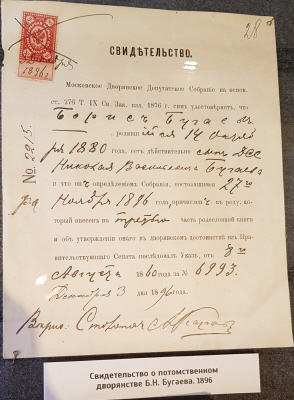 28
1896 г.
СВИДѢТЕЛЬСТВО.
Московское Дворянское Депутатское Собраніе на основ.
ст. 276 Т. IX Св. Зак. изд. 1876 г. симъ удостовѣряетъ, что
Борисъ Бугаевъ,
родившійся 14 Октяб
ря 1880 года, есть дѣйствительно сынъ ДСС
Николая Васильевича Бугаева
и что онъ опредѣленіемъ Собранія, состоявшимся 27го
Ноября 1896 года причисленъ къ роду,
который внесенъ въ третью часть родословной книги
и объ утвержденіи онаго въ дворянскомъ достоинствѣ изъ Пра-
вительствующаго Сената послѣдовалъ Указъ, отъ 8го
Августа 1860 года за № 6993.
Декабря 3 дня 1896 года.
Вѣрно:
№ 2215.
Свидетельство о потомственном
дворянстве Б.Н. Бугаева. 1896